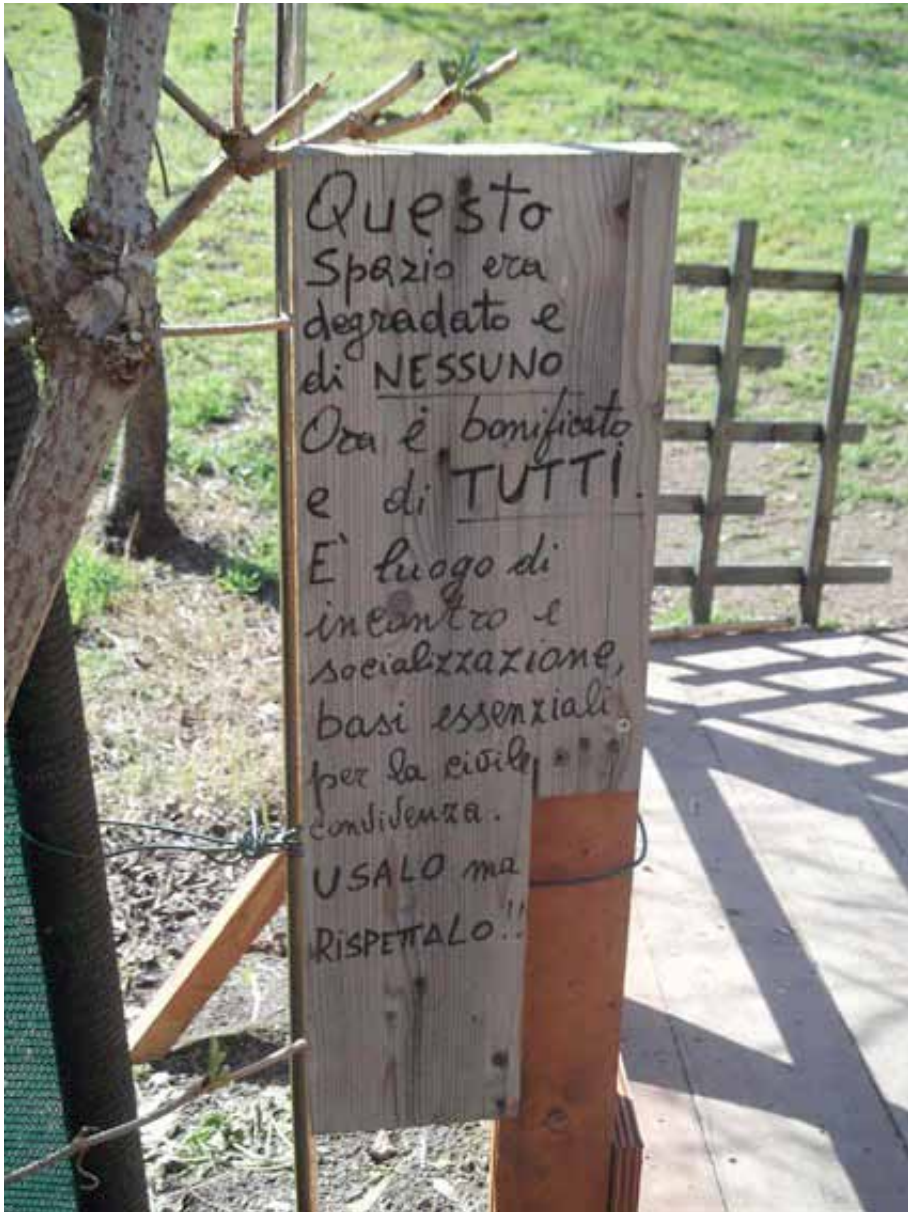 Questo
Spazio era
degradato e
di NESSUNO
Ora è bonificato
e di TUTTI.
E' luogo di
incontro e
socializzazione,
basi essenziali
per la civile
convivenza.
USALO ma
RISPETTALO!!